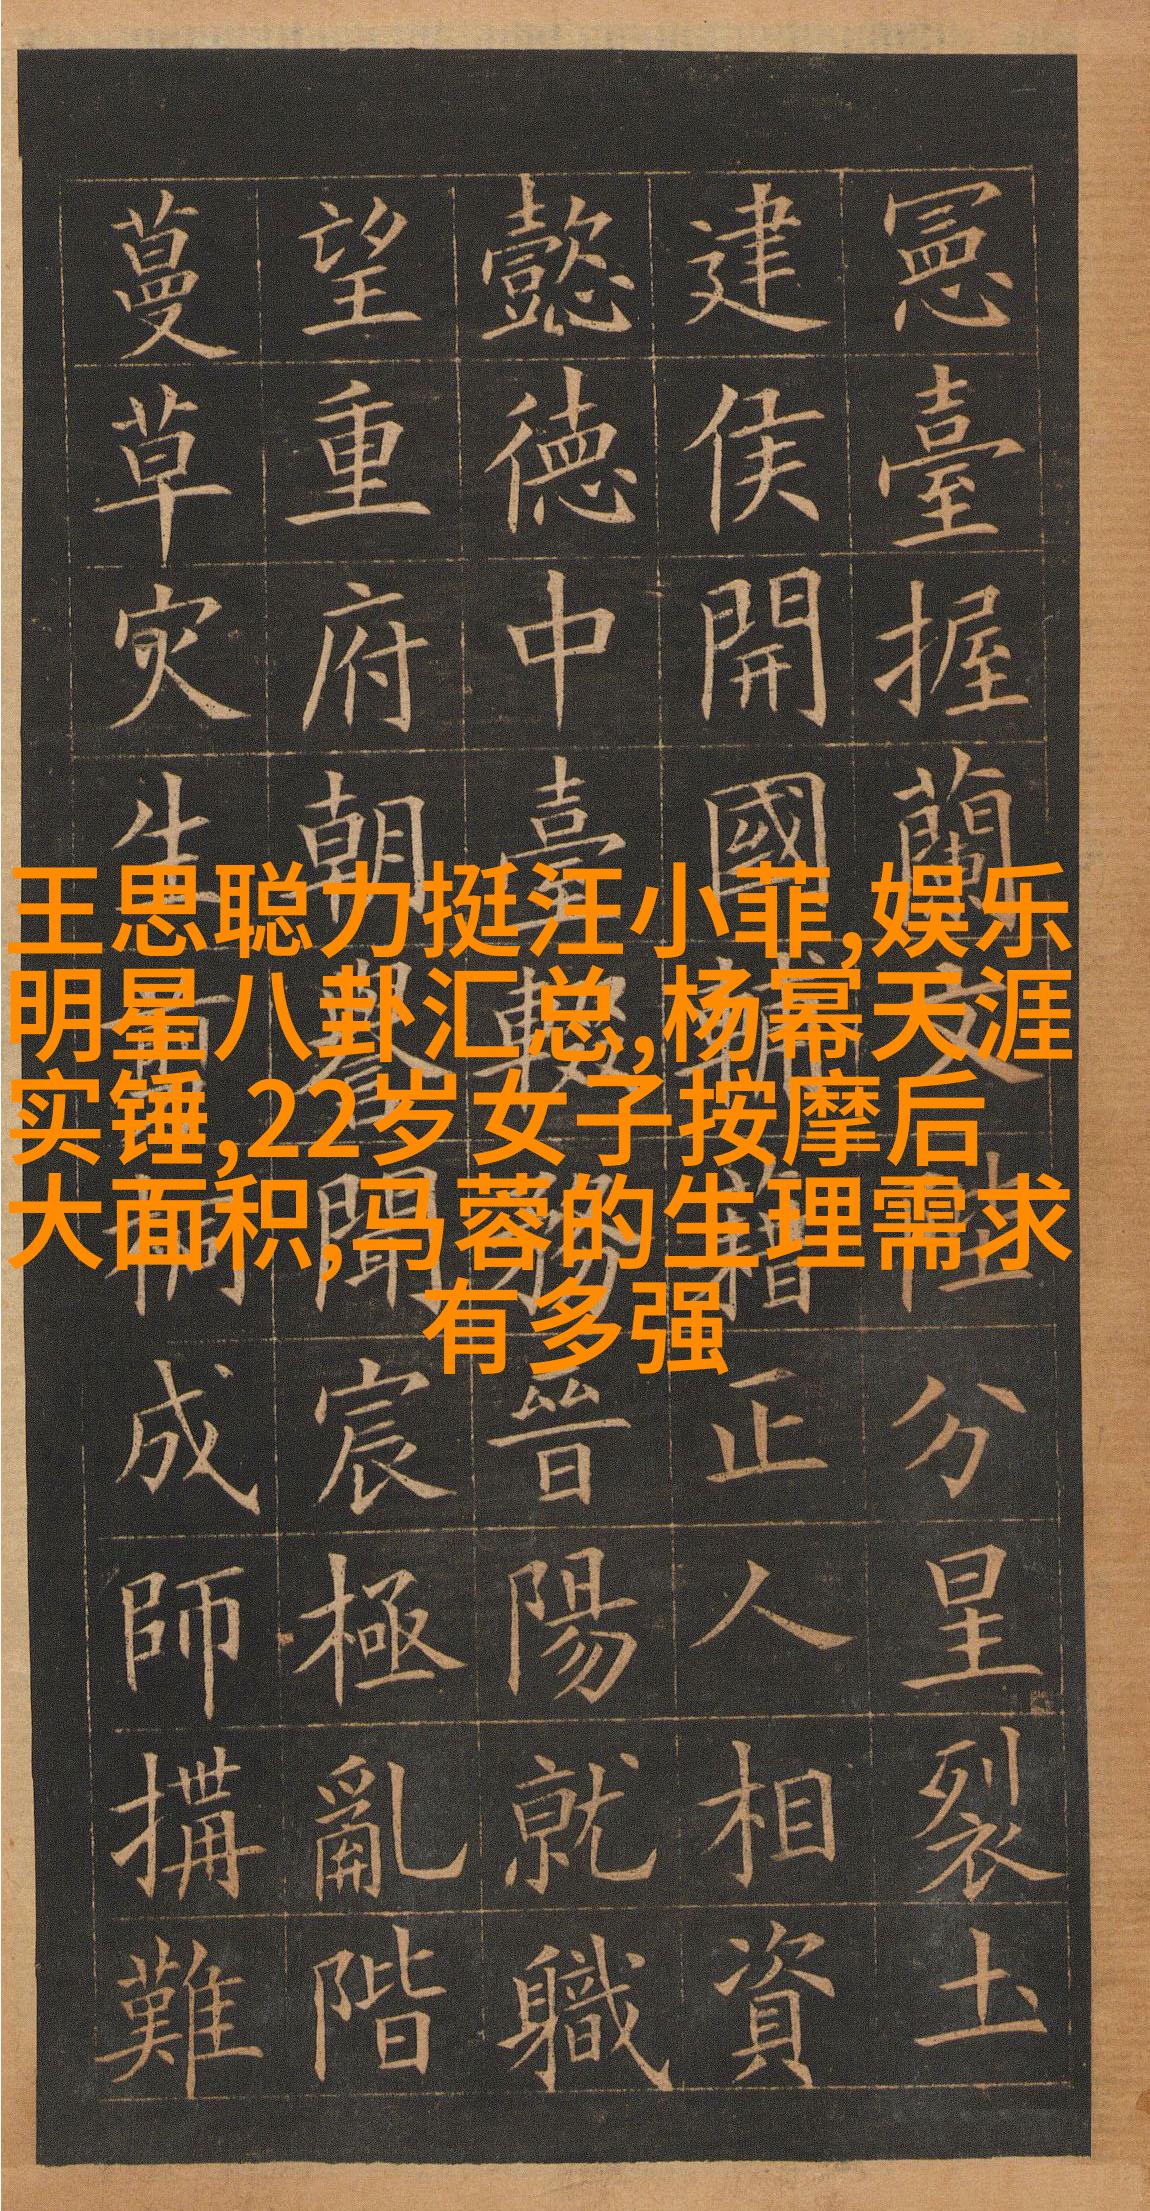 憲臺握蘭文陛分星裂土
建侯開國藉正人相資
懿德中臺晉陽就職
望重府朝譽聞宸極亂階
蔓草灾生桐成師搆難
王思聪力挺汪小菲,娱乐
明星八卦汇总,杨幂天涯
实锤,22岁女子按摩后
大面积,马蓉的生理需求
有多强